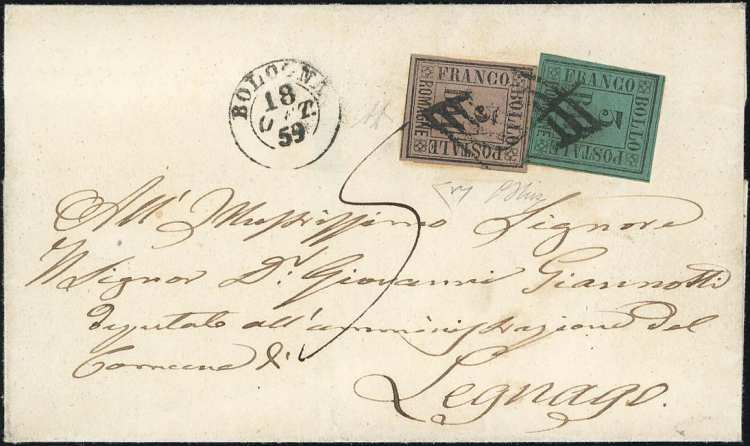 BOLOGNA
18
OTT.
59
FRANCO
BOLLO
POSTALE
ROMAGNE
FRANCO
BOLLO
POSTALE
5
All' Illustrissimo Signore
Il Signor Dr. Giovanni Giannotti
deputato all'amministrazione del
Comune di
Legnago.